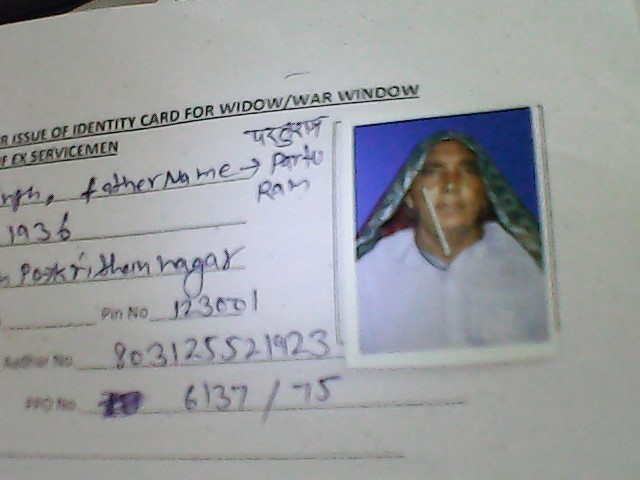 R ISSUE OF IDENTITY CARD FOR WIDOW/WAR WINDOW
F EX SERVICEMEN
परतुराम
ingh, father Name → Partu
Ram
1936
nagar
Pin No 123001
Aadhar No. 803125521923
PPO No 6137/75